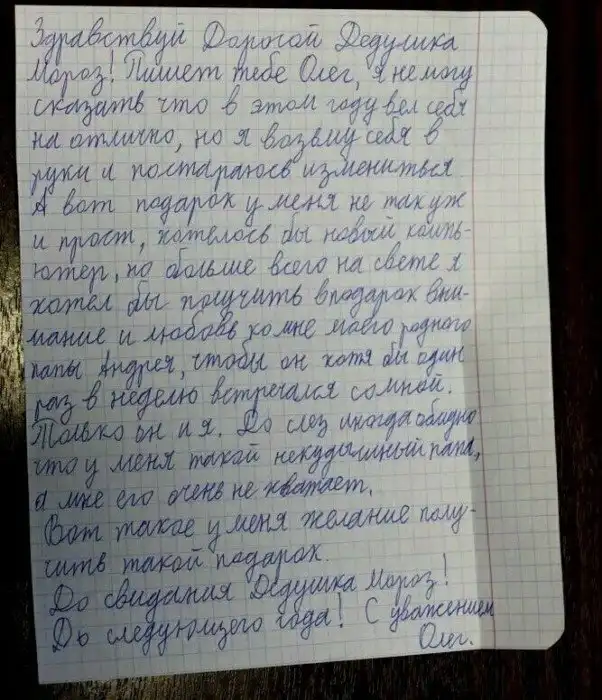 Здравствуй Дорогой Дедушка
Мороз! Пишет тебе Олег, я не могу
сказать что в этом году вел себя
на отлично, но я возьму себя в
руки и постараюсь измениться
А вот подарок у меня не так уж
и прост, хотелось бы новый компь-
ютер, но больше всего на свете я
хотел бы получить в подарок вни-
мание и любовь ко мне моего родного
папы Андрея, чтобы он хотя бы один
раз в неделю встречался со мной.
Только он и я. До слез иногда обидно
что у меня такой некудышный папа,
а мне его очень не хватает.
Вот такое у меня желание полу-
чить такой подарок.
До свидания Дедушка Мороз!
До следующего года! С уважением
Олег.